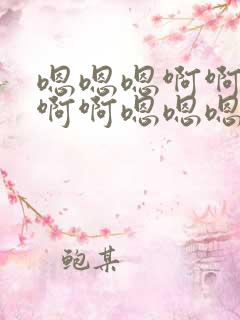 嗯嗯嗯啊啊
啊啊嗯嗯嗯
鲍某